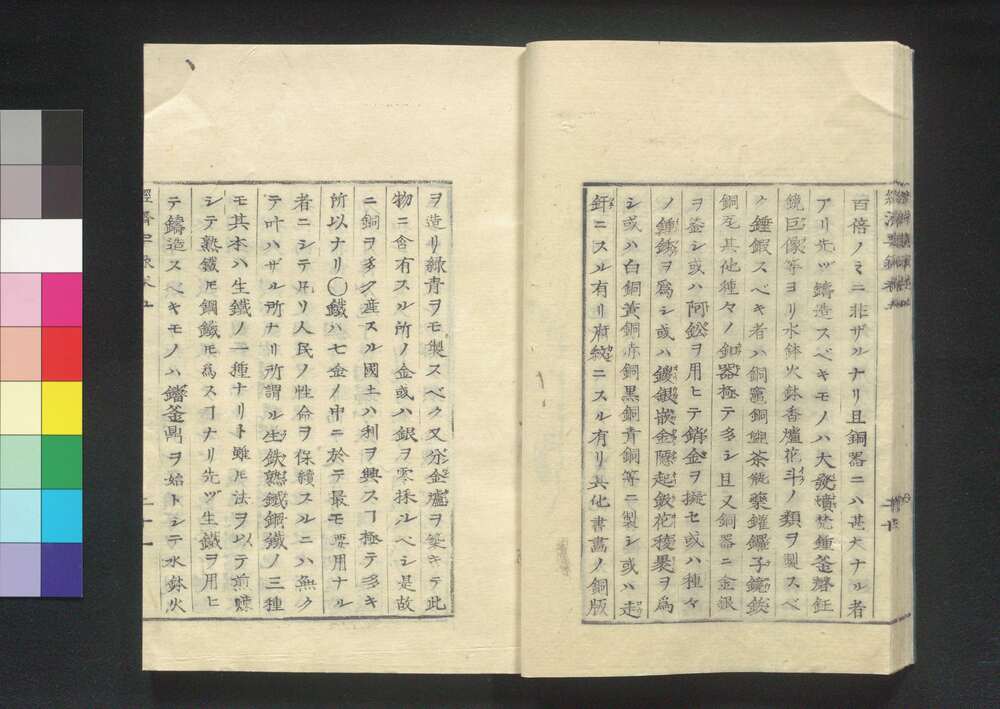 百倍ノミニ非ザルナリ且銅器ニハ甚大ナル者
アリ先ヅ鑄造スベキモノハ大發熕梵鍾釜磬鉦
鏡巨像等ヨリ水鉢火鉢香爐花斗ノ類ヲ製スベ
ク錘鍜スベキ者ハ銅竃銅壺茶瓶藥鑵鑼子鐃鈸
銅瓦其他種々ノ銅器極テ多シ且又銅器ニ金銀
ヲ釜シ或ハ阿鈆ヲ用ヒテ鎖金ヲ擬セ或ハ種々
ノ鍾銹ヲ爲シ或ハ鏤銀嵌金隱起鈸花稜累ヲ爲
シ或ハ白銅黃銅赤銅黒銅青銅等ニ製シ或ハ走
釬ニスル有リ府紋ニスル有リ其他書畵ノ銅版
ヲ造リ綠青ヲモ製スベク又分金爐ヲ築キテ此
物ニ含有スル所ノ金或ハ銀ヲ零採ルベシ是故
ニ銅ヲ多ク産スル國土ハ利ヲ興スヿ極テ多キ
所以ナリ○鐵ハ七金ノ中ニ於テ最モ要用ナル
者ニシテ凡リ人民ノ性命ヲ保續スルニハ無ク
テ叶ハザル所ナリ所謂ル生鉄熟鐵鋼鐵ノ三種
モ其本ハ生鐵ノ一種ナリト雖モ法ヲ以テ煎煉
シテ熟鐵モ鋼鐵モ爲スヿナリ先ヅ生鐵ヲ用ヒ
テ鑄造スベキモノハ鐕釜鼎ヲ始トシテ水鉢火